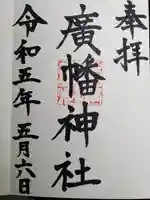 奉拝
廣幡神社
令和五年五月六日